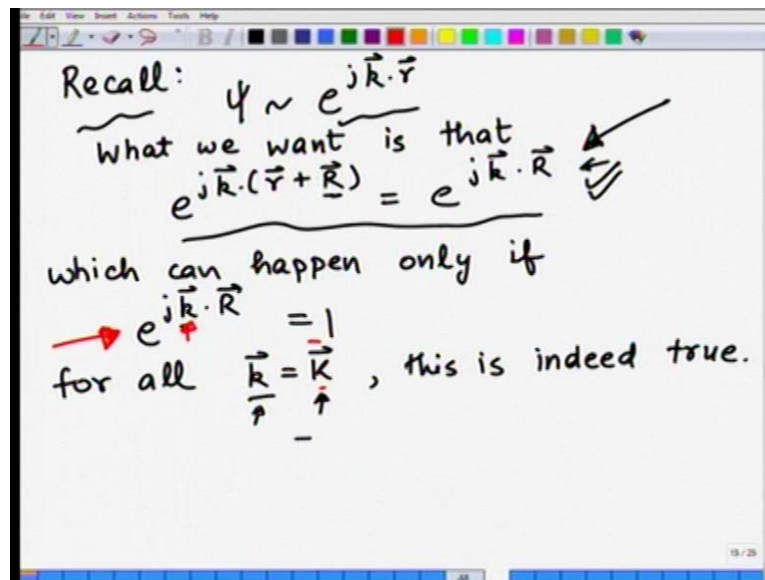 File Edit View Insert Actions Tools Help
Recall: ψ ~ e^{j\vec{k}·\vec{r}}
What we want is that
e^{j\vec{k}·(\vec{r} + \vec{R})} = e^{j\vec{k}·\vec{R}}
which can happen only if
e^{j\vec{k}·\vec{R}} = 1
for all \vec{k} = \vec{K}, this is indeed true.